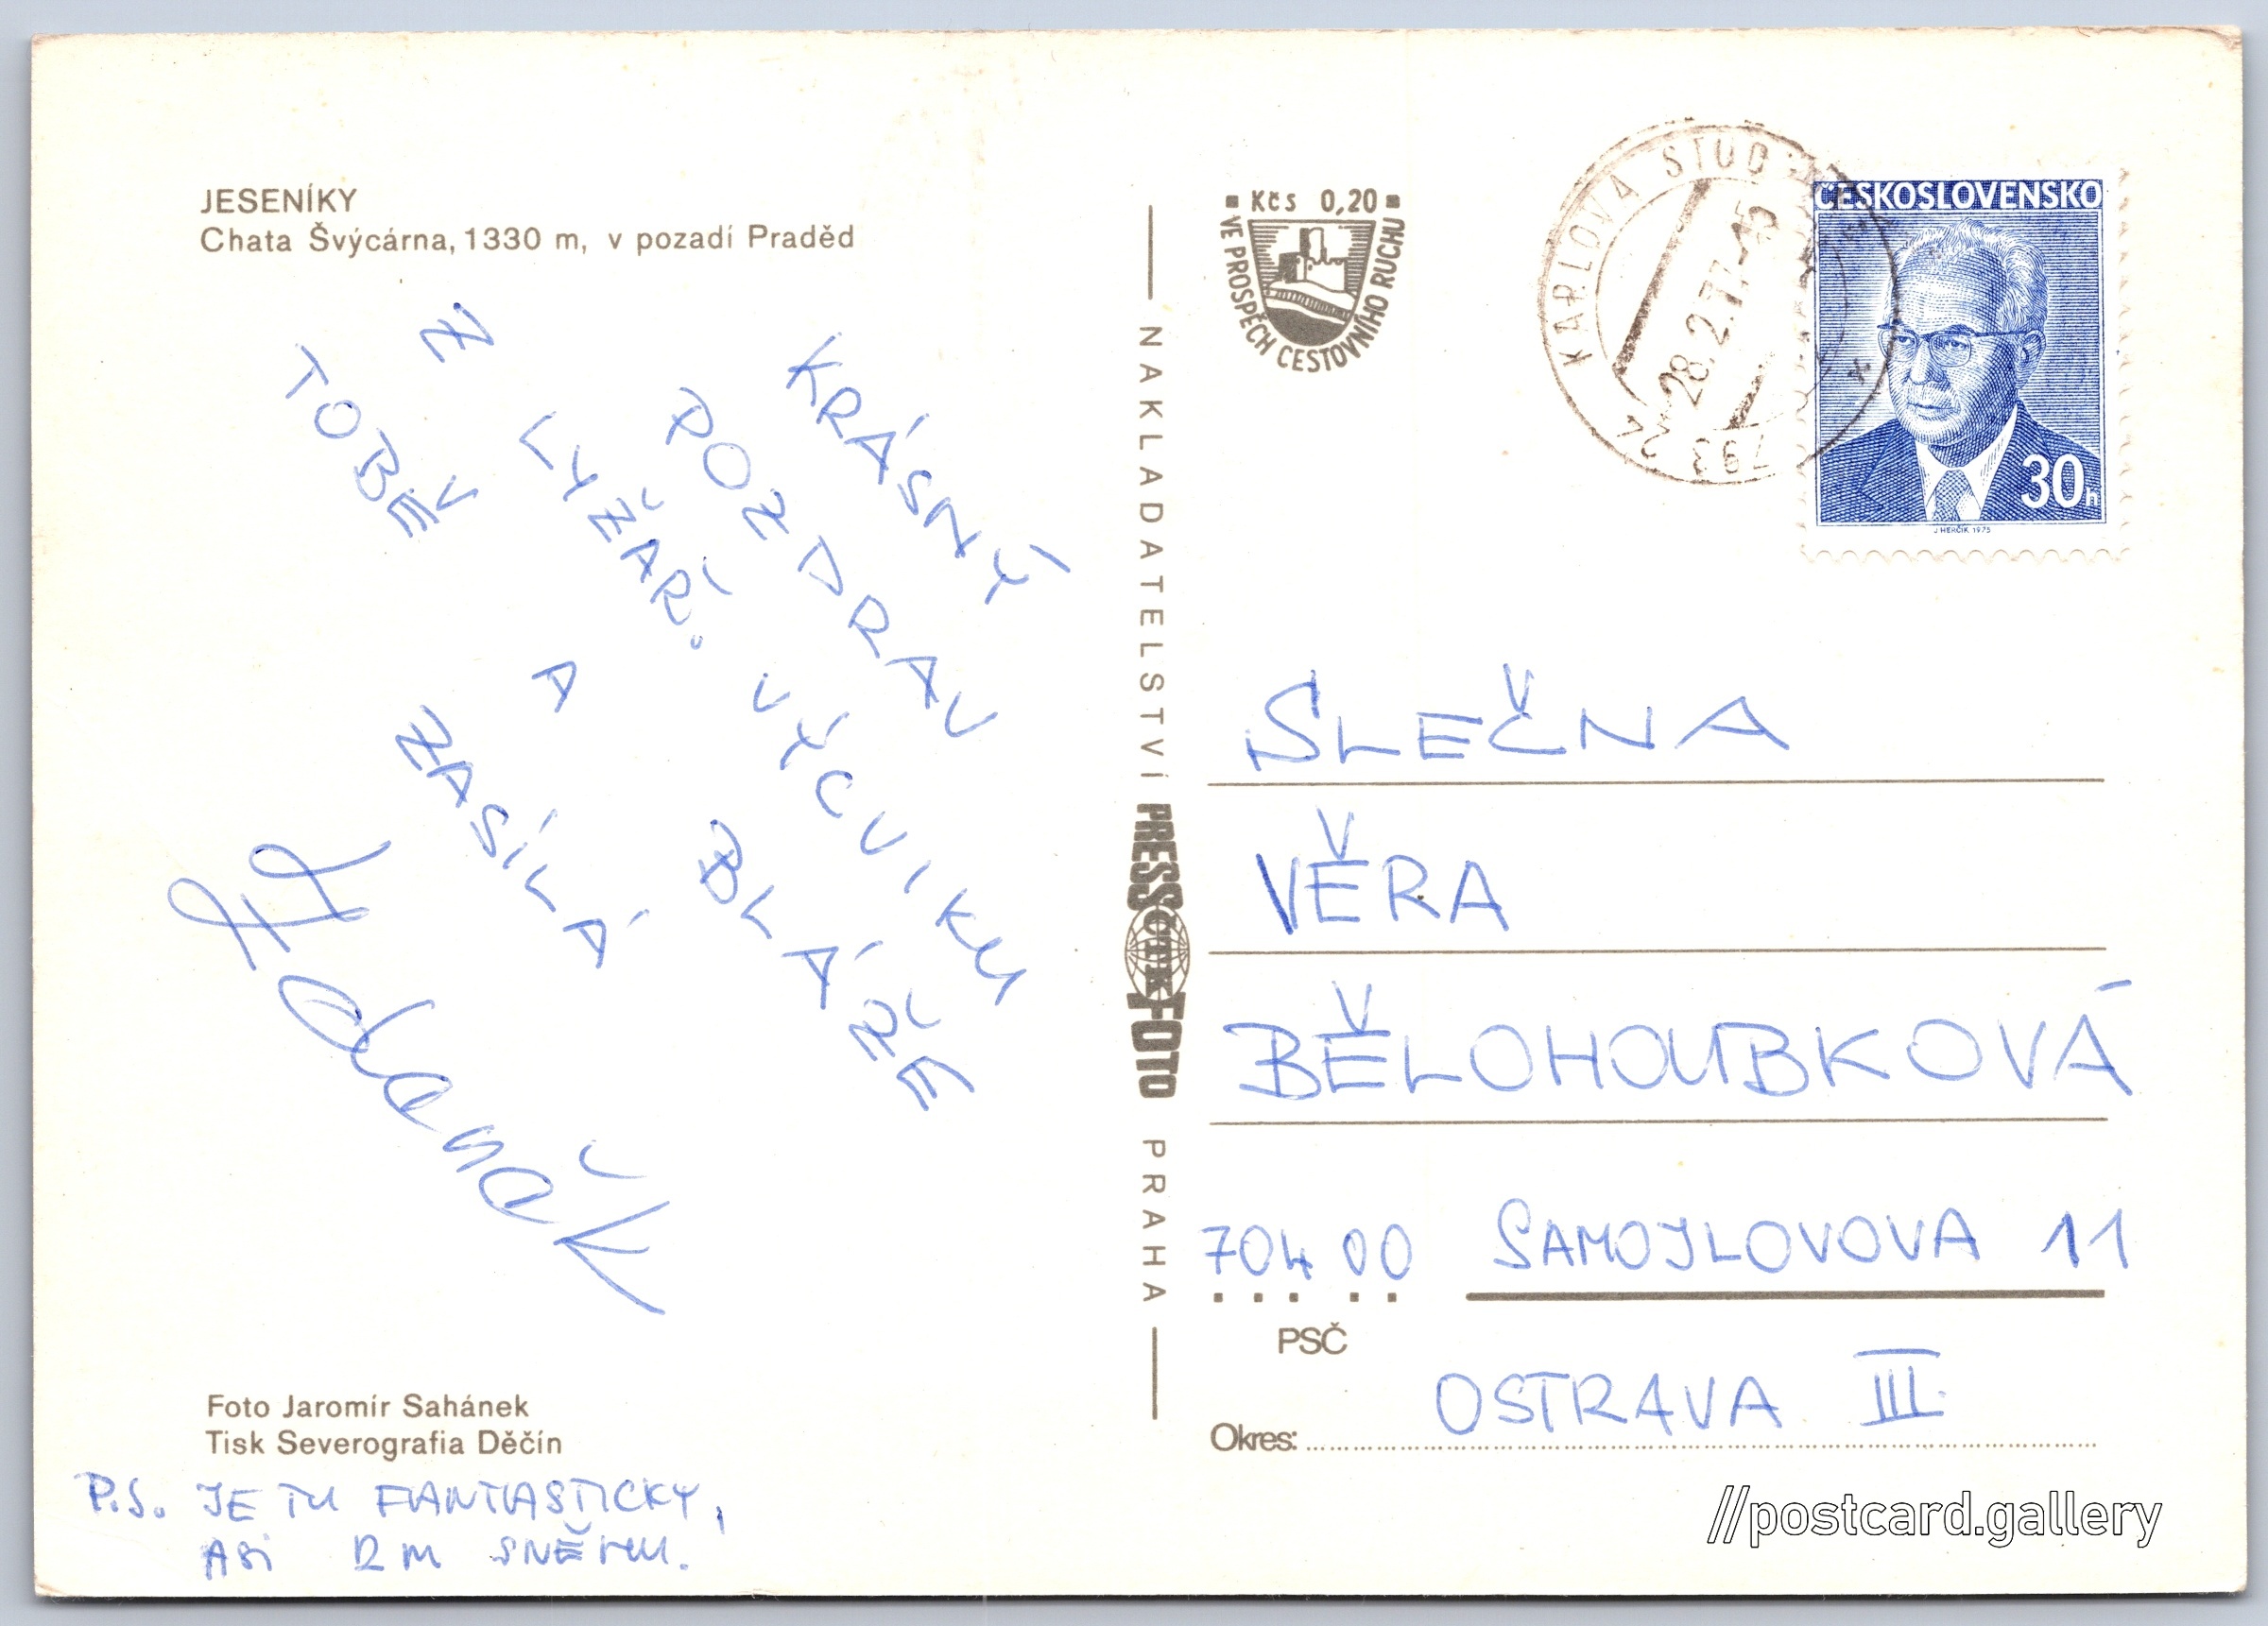 JESENÍKY
Chata Švýcárna, 1330 m, v pozadí Praděd
KRÁSNÝ
POZDRAV
Z LYŽAŘ. VÝCVIKU
TOBĚ A BLÁŽE
ZASÍLÁ
Zdeněk
Foto Jaromír Sahánek
Tisk Severografia Děčín
P.S. JE TU FANTASTICKY,
ASI 2 m SNĚHU.
NAKLADATELSTVÍ PRESSFOTO PRAHA
ČTK
Kčs 0,20
VE PROSPĚCH CESTOVNÍHO RUCHU
KARLOVA STUD
28.2.77-15
793 24
ČESKOSLOVENSKO
30h
J. HERČÍK 1975
SLEČNA
VĚRA
BĚLOHOUBKOVÁ
704 00 SAMOJLOVOVA 11
PSČ
OSTRAVA III.
Okres:
//postcard.gallery